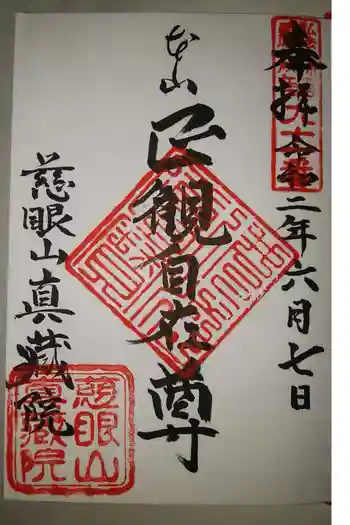 奉拝 令和二年六月七日
本山
正観自在尊
慈眼山真蔵院
慈眼山
真蔵院